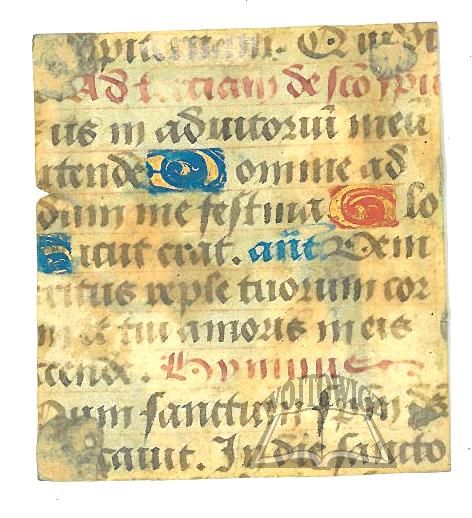 Ad terciam de sco spu
us in adiutoriũ meũ
ntende Domine ad
dum me festina Glo
Sicut erat. añt Veni
ritus reple tuorum cor
et tui amoris in eis
ccende. Hymnus
Dum sanctum
cauit. In die sancto
WÓJTOWICZ